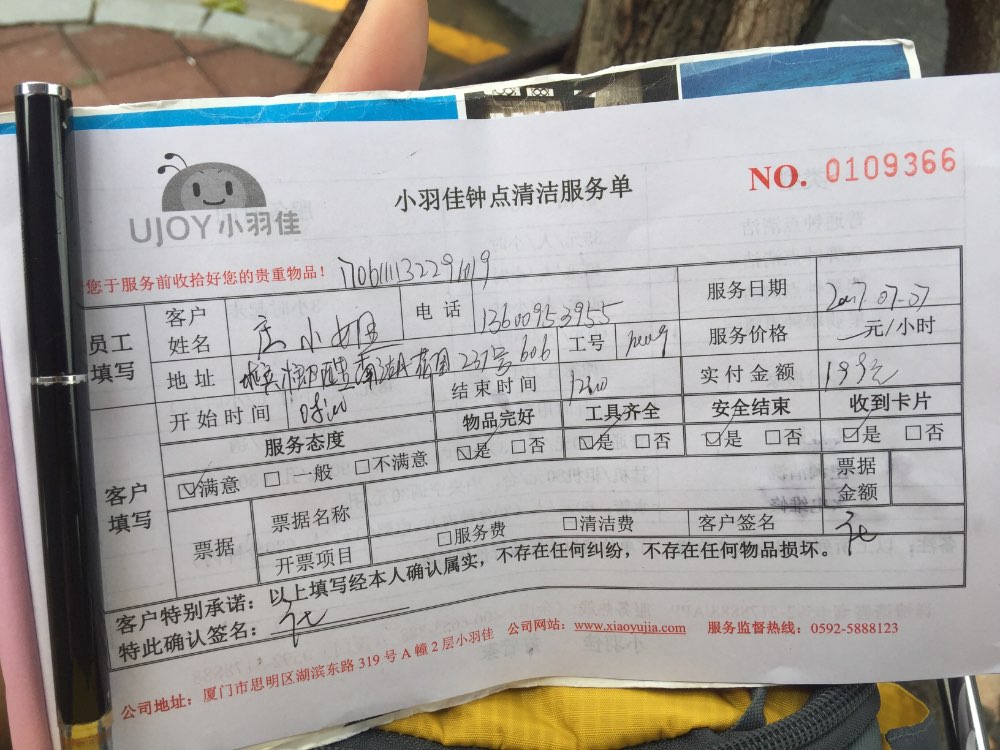 UJOY小羽佳
小羽佳钟点清洁服务单
NO. 0109366
您于服务前收拾好您的贵重物品！
员工填写
客户姓名
小姐
电话
13600953955
服务日期
2017.07-07
地址
南湖花园237号606
工号
服务价格
元/小时
开始时间
08:00
结束时间
12:00
实付金额
服务态度
物品完好
工具齐全
安全结束
收到卡片
客户填写
☑满意 □一般 □不满意
☑是 □否
☑是 □否
☑是 □否
☑是 □否
票据
票据名称
票据金额
开票项目
□服务费 □清洁费
客户签名
客户特别承诺：以上填写经本人确认属实，不存在任何纠纷，不存在任何物品损坏。
特此确认签名：
公司地址：厦门市思明区湖滨东路319号A幢2层小羽佳 公司网站：www.xiaoyujia.com 服务监督热线：0592-5888123